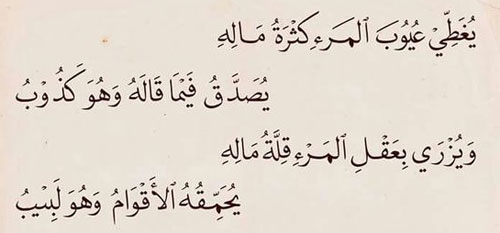 يُغَطِّيْ عُيُوبَ المَرءِ كَثْرَةُ مَالِهِ
يُصَدَّقُ فَيْمَا قَالَهُ وَهُوَ كَذُوْبُ
وَيُزْرَي بِعَقْلِ المَرْءِ قِلَّةُ مَالِهِ
يُحَمِّقُهُ الأَقْوَامُ وَهُوَ لَبِيْبُ